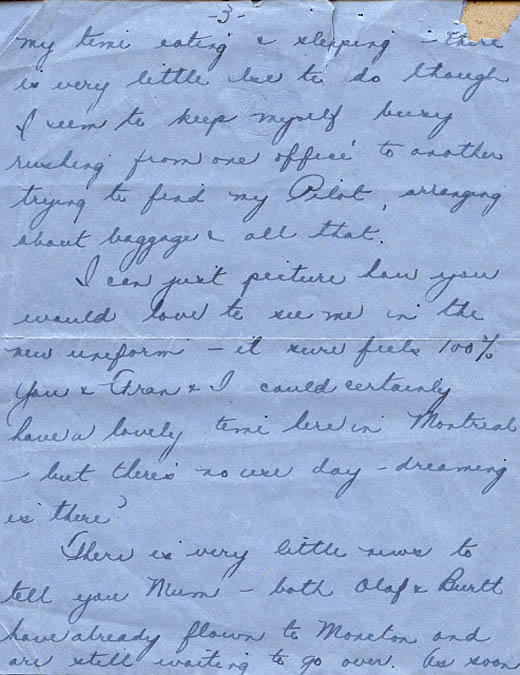 -3-
my time eating & sleeping - there
is very little else to do though
I seem to keep myself busy
rushing from one office to another
trying to find my Pilot, arranging
about baggage & all that.
I can just picture how you
would love to see me in the
new uniform - it sure feels 100%
You & Fran & I could certainly
have a lovely time here in Montreal
- but there's no use day-dreaming
is there?
There is very little news to
tell you Mum - both Olaf & Burtt
have already flown to Moncton and
are still waiting to go over. As soon